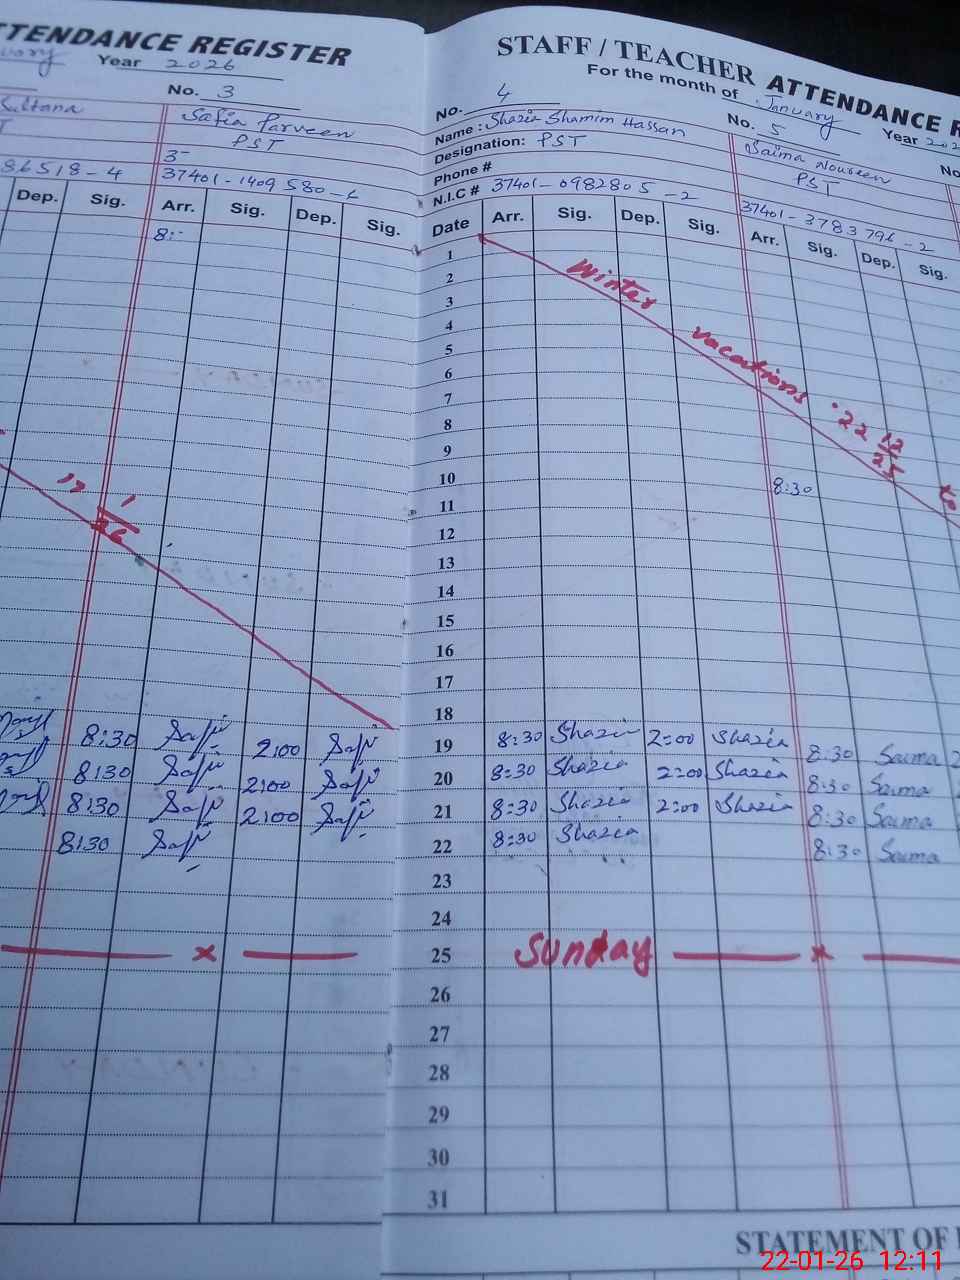 TTENDANCE REGISTER
Year 2026
No. 3
Safia Parveen
PST
3-
86518-4
37401-1409580-6
Dep. Sig. Arr. Sig. Dep. Sig.
8:-
1
26
8:30 Safi 2:00 Safi
8:30 Safi 2:00 Safi
8:30 Safi 2:00 Safi
8:30 Safi
x
STAFF / TEACHER ATTENDANCE R
For the month of January Year 202
No. 4
No. 5
Name: Shazia Shamim Hassan
Saima Noureen
Designation: PST
PST
Phone #
N.I.C # 37401-0982805-2
37401-3783796-2
Date Arr. Sig. Dep. Sig. Arr. Sig. Dep. Sig.
1
2
Winter vacations 22 12/25 to
3
4
5
6
7
8
9
10
8:30
11
12
13
14
15
16
17
18
19 8:30 Shazia 2:00 Shazia 8:30 Saima 2
20 8:30 Shazia 2:00 Shazia 8:30 Saima
21 8:30 Shazia 2:00 Shazia 8:30 Saima
22 8:30 Shazia 8:30 Saima
23
24
25 Sunday x
26
27
28
29
30
31
STATEMENT OF
22-01-26 12:11